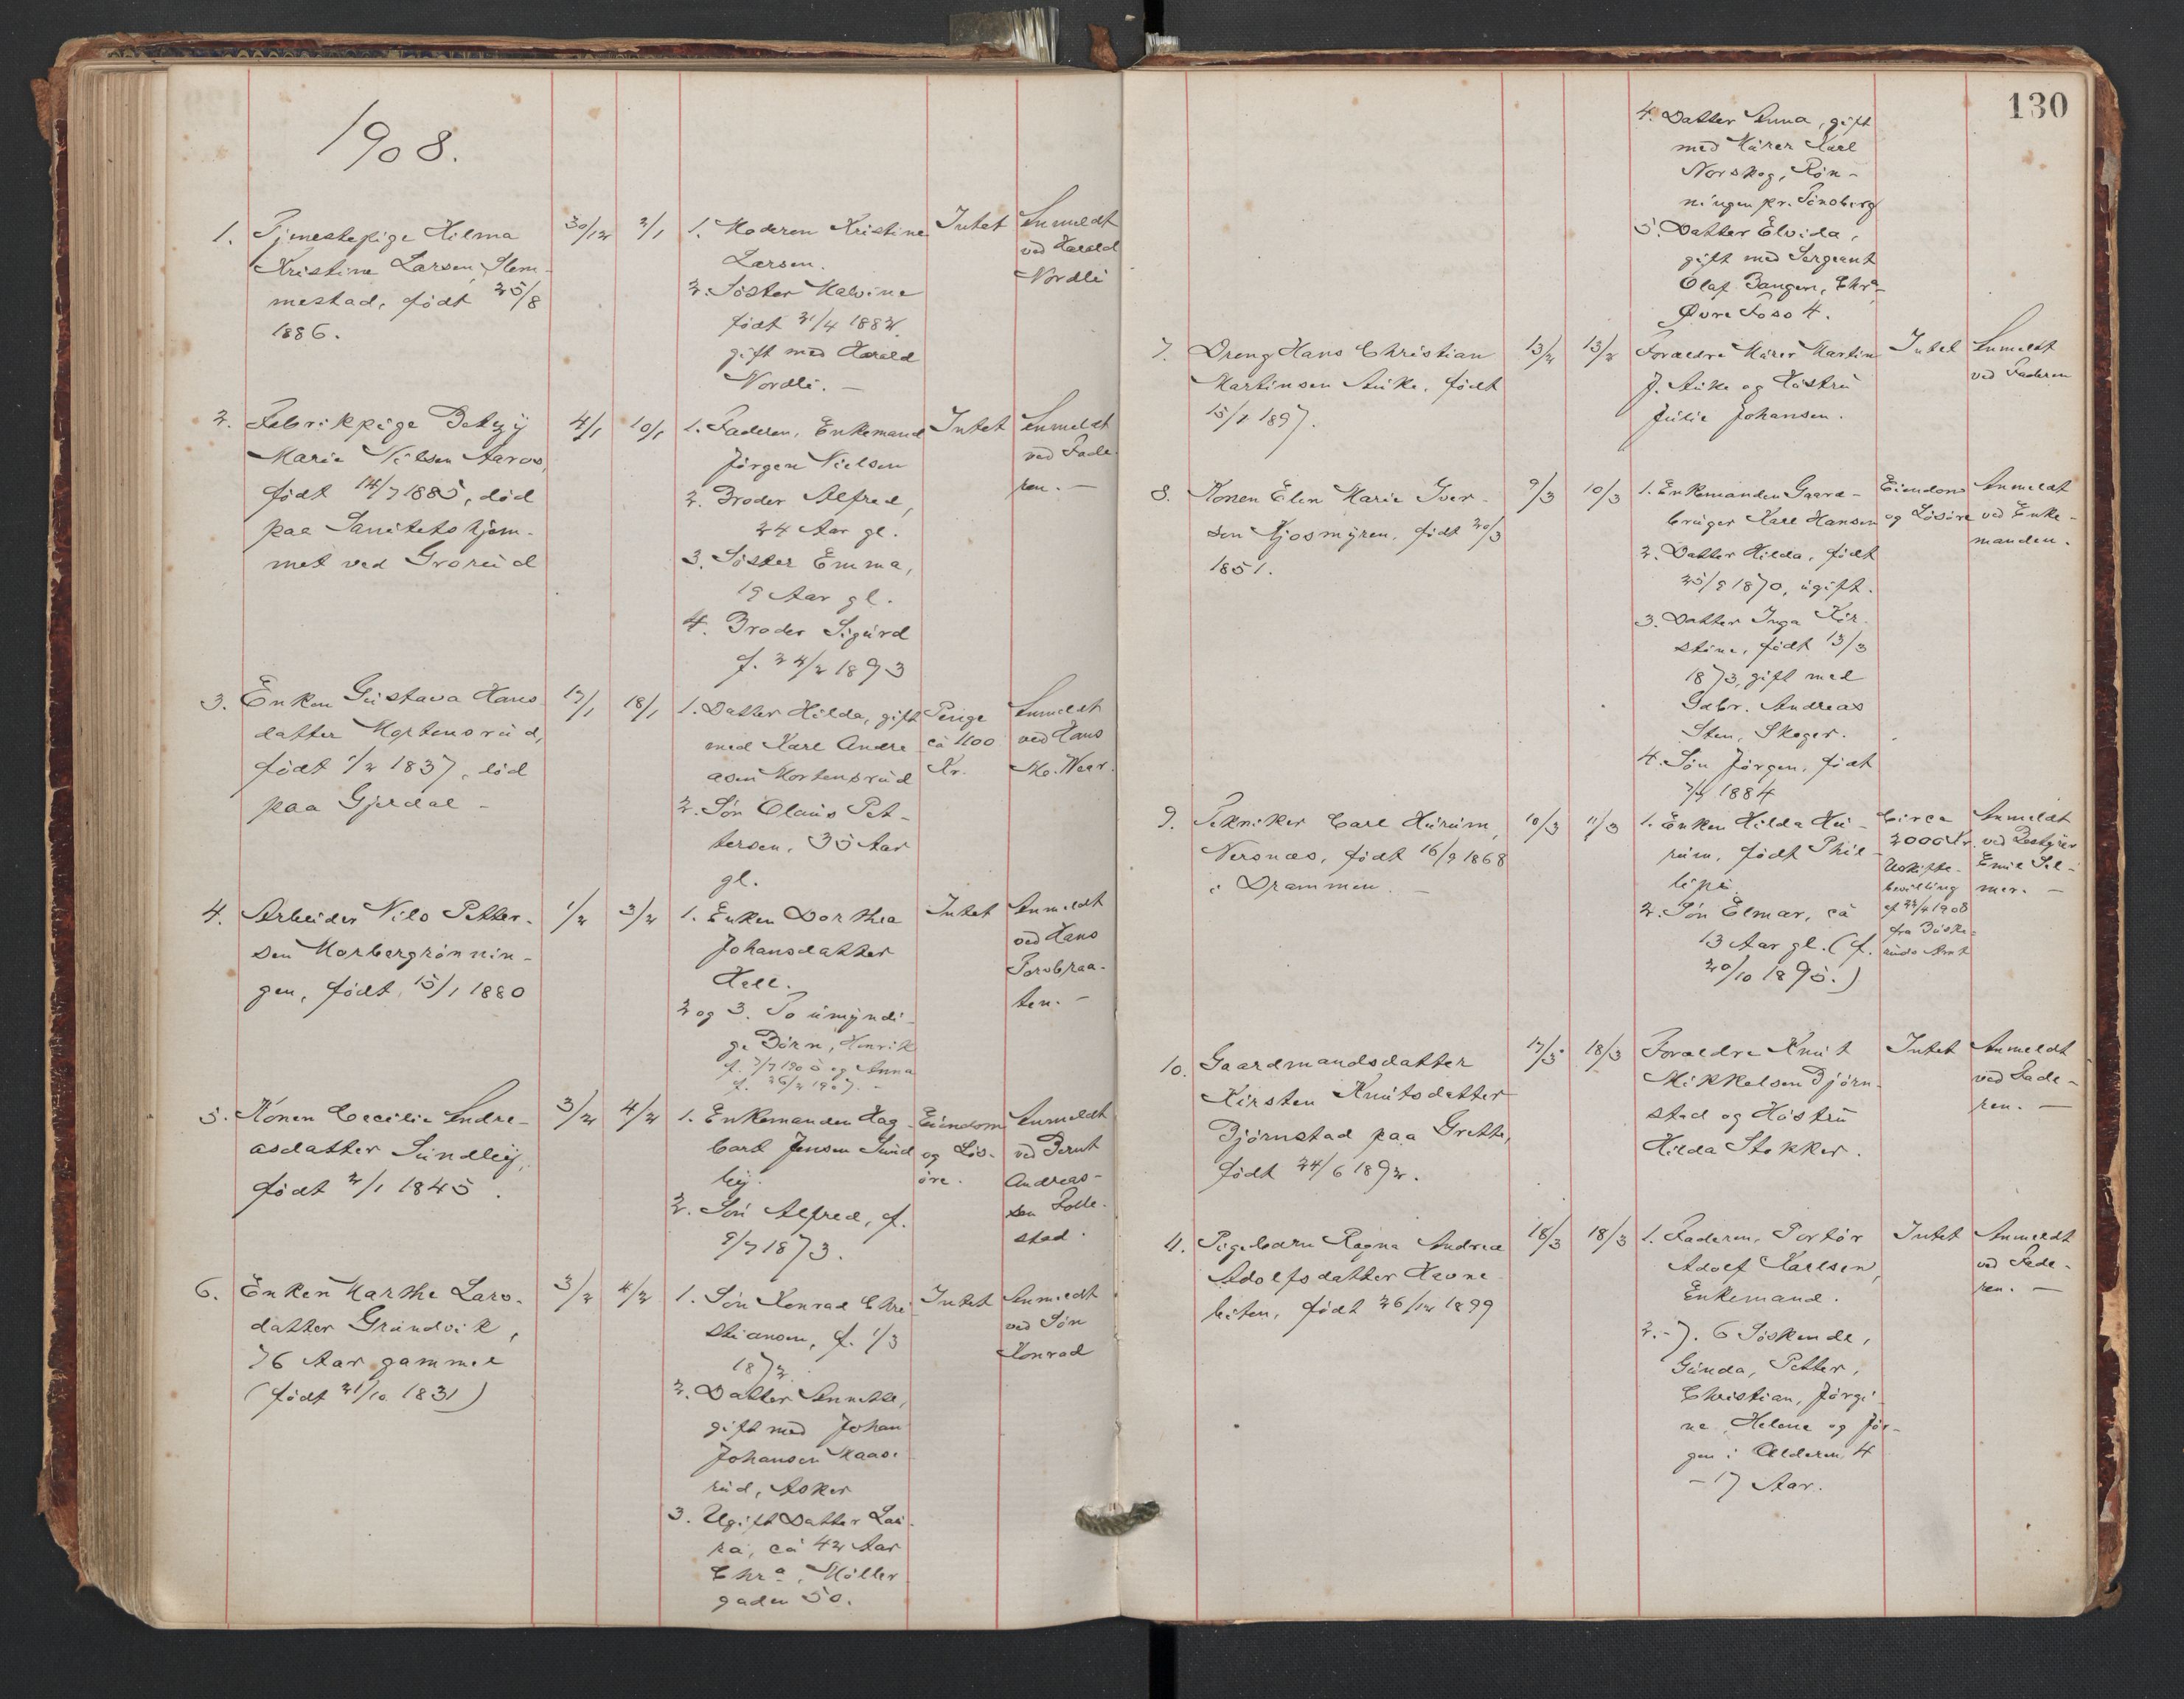 1908.
1. Tjenestepige Hilma
Kristine Larsen, Slem-
mestad, født 25/8
1886.
30/12
2/1
1. Moderen Kristine
Larsen.
2. Søster Malvine
født 21/4 1882
gift med Harald
Nordli. —
Intet
Anmeldt
ved Harald
Nordli
2. Fabrikpige Betzy
Marie Nilsen Aaros,
født 14/7 1885, død
paa Sanitetshjem-
met ved Grorud
4/1
10/1
1. Faderen, Enkemand
Jørgen Nielsen
2. Broder Alfred,
24 Aar gl.
3. Søster Emma,
19 Aar gl.
4. Broder Sigurd
f. 24/2 1893
Intet
Anmeldt
ved Fade-
ren. —
3. Enken Gustava Hans-
datter Mortensrud,
født 1/2 1837, død
paa Gjerdal —
17/1
18/1
1. Datter Hilda, gift
med Karl Andre-
asen Mortensrud
2. Søn Olaus Pet-
tersen, 35 Aar
gl.
Penge
ca 1100
Kr.
Anmeldt
ved Hans
Mo. Nær.
4. Arbeider Nils Petter-
sen Morbergrønnin-
gen, født 15/1 1880
1/2
3/2
1. Enken Dorthea
Johansdatter
Hell.
2 og 3. To umyndi-
ge Børn, Henrik
f. 7/7 1905 og Anna
f. 26/2 1907. —
Intet
Anmeldt
ved Hans
Torsbraa-
ten. —
5. Konen Cecilie Andre-
asdatter Sundlej,
født 2/1 1845.
3/2
4/2
1. Enkemanden Hag-
bart Jensen Sund-
lej.
2. Søn Alfred, f.
9/7 1873.
Eiendom
og Løs-
øre.
Anmeldt
ved Bernt
Andreas-
sen Tolle-
stad.
6. Enken Marthe Lars-
datter Grundvik,
76 Aar gammel
(født 21/10 1831)
3/2
4/2
1. Søn Konrad Chri-
stiansen, f. 1/3
1872
2. Datter Annette,
gift med Johan
Johansen Haase-
rud, Asker
3. Ugift Datter Lau-
ra, ca 42 Aar
Chra. Møller-
gaden 50.
Intet
Anmeldt
ved Søn
Konrad
130
4. Datter Anna, gift
med Murer Karl
Norskog, Røn-
ningen pr. Tinoberg
5. Datter Elvida,
gift med Sergeant
Olaf Bangen, Chra-
Øvre Foso 4.
7. Dreng Hans Christian
Martinsen Auke, født
15/1 1897.
13/2
13/2
Forældre Murer Martin
J. Auke og Hustru
Julie Johansen.
Intet
Anmeldt
ved Faderen
8. Konen Elen Marie Iver-
sen Kjosmyren, født 20/3
1851.
9/3
10/3
1. Enkemanden Gaard-
bruger Karl Hansen
2. Datter Hilda, født
25/9 1870, ugift.
3. Datter Inga Kir-
stine, født 13/3
1873, gift med
Gdbr. Andreas
Sten, Skoger.
4. Søn Jørgen, født
7/4 1884
Eiendom
og Løsøre
Anmeldt
ved Enke-
manden.
9. Tekniker Carl Hurum,
Nersnæs, født 16/9 1868
i Drammen. —
10/3
11/3
1. Enken Hilda Hu-
rum, født Phil-
lipi.
2. Søn Elmar, ca
13 Aar gl. (f.
20/10 1895.)
Circa
2000 Kr.
Uskifte-
bevilling
af 22/4 1908
fra Buske-
ruds Amt
Anmeldt
ved Bestyrer
Emil Sel-
mer. —
10. Gaardmandsdatter
Kirsten Knutsdatter
Bjørnstad paa Grette,
født 24/6 1892.
17/3
18/3
Forældre Knut
Mikkelsen Bjørn-
stad og Hustru
Hilda Stokker.
Intet
Anmeldt
ved Fade-
ren. —
11. Pigebarn Ragna Andrea
Adolfsdatter Havne-
biten, født 26/12 1899
18/3
18/3
1. Faderen, Portør
Adolf Karlsen,
Enkemand.
2.-7. 6 Søskende,
Gunda, Petter,
Christian, Jørgi-
ne, Helene og Jør-
gen i Alderen 4
— 17 Aar.
Intet
Anmeldt
ved Fade-
ren. —